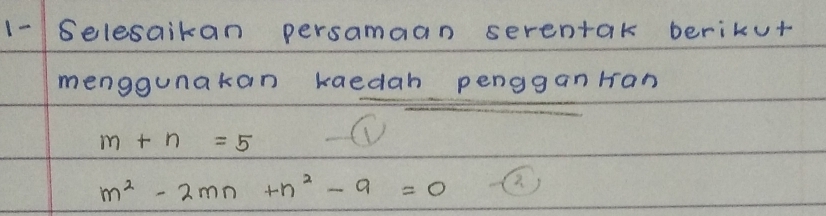 1- Selesaikan persamaan serentak berikut
menggunakan kaedah penggantian
m + n = 5 —①
m² - 2mn + n² - 9 = 0 —②